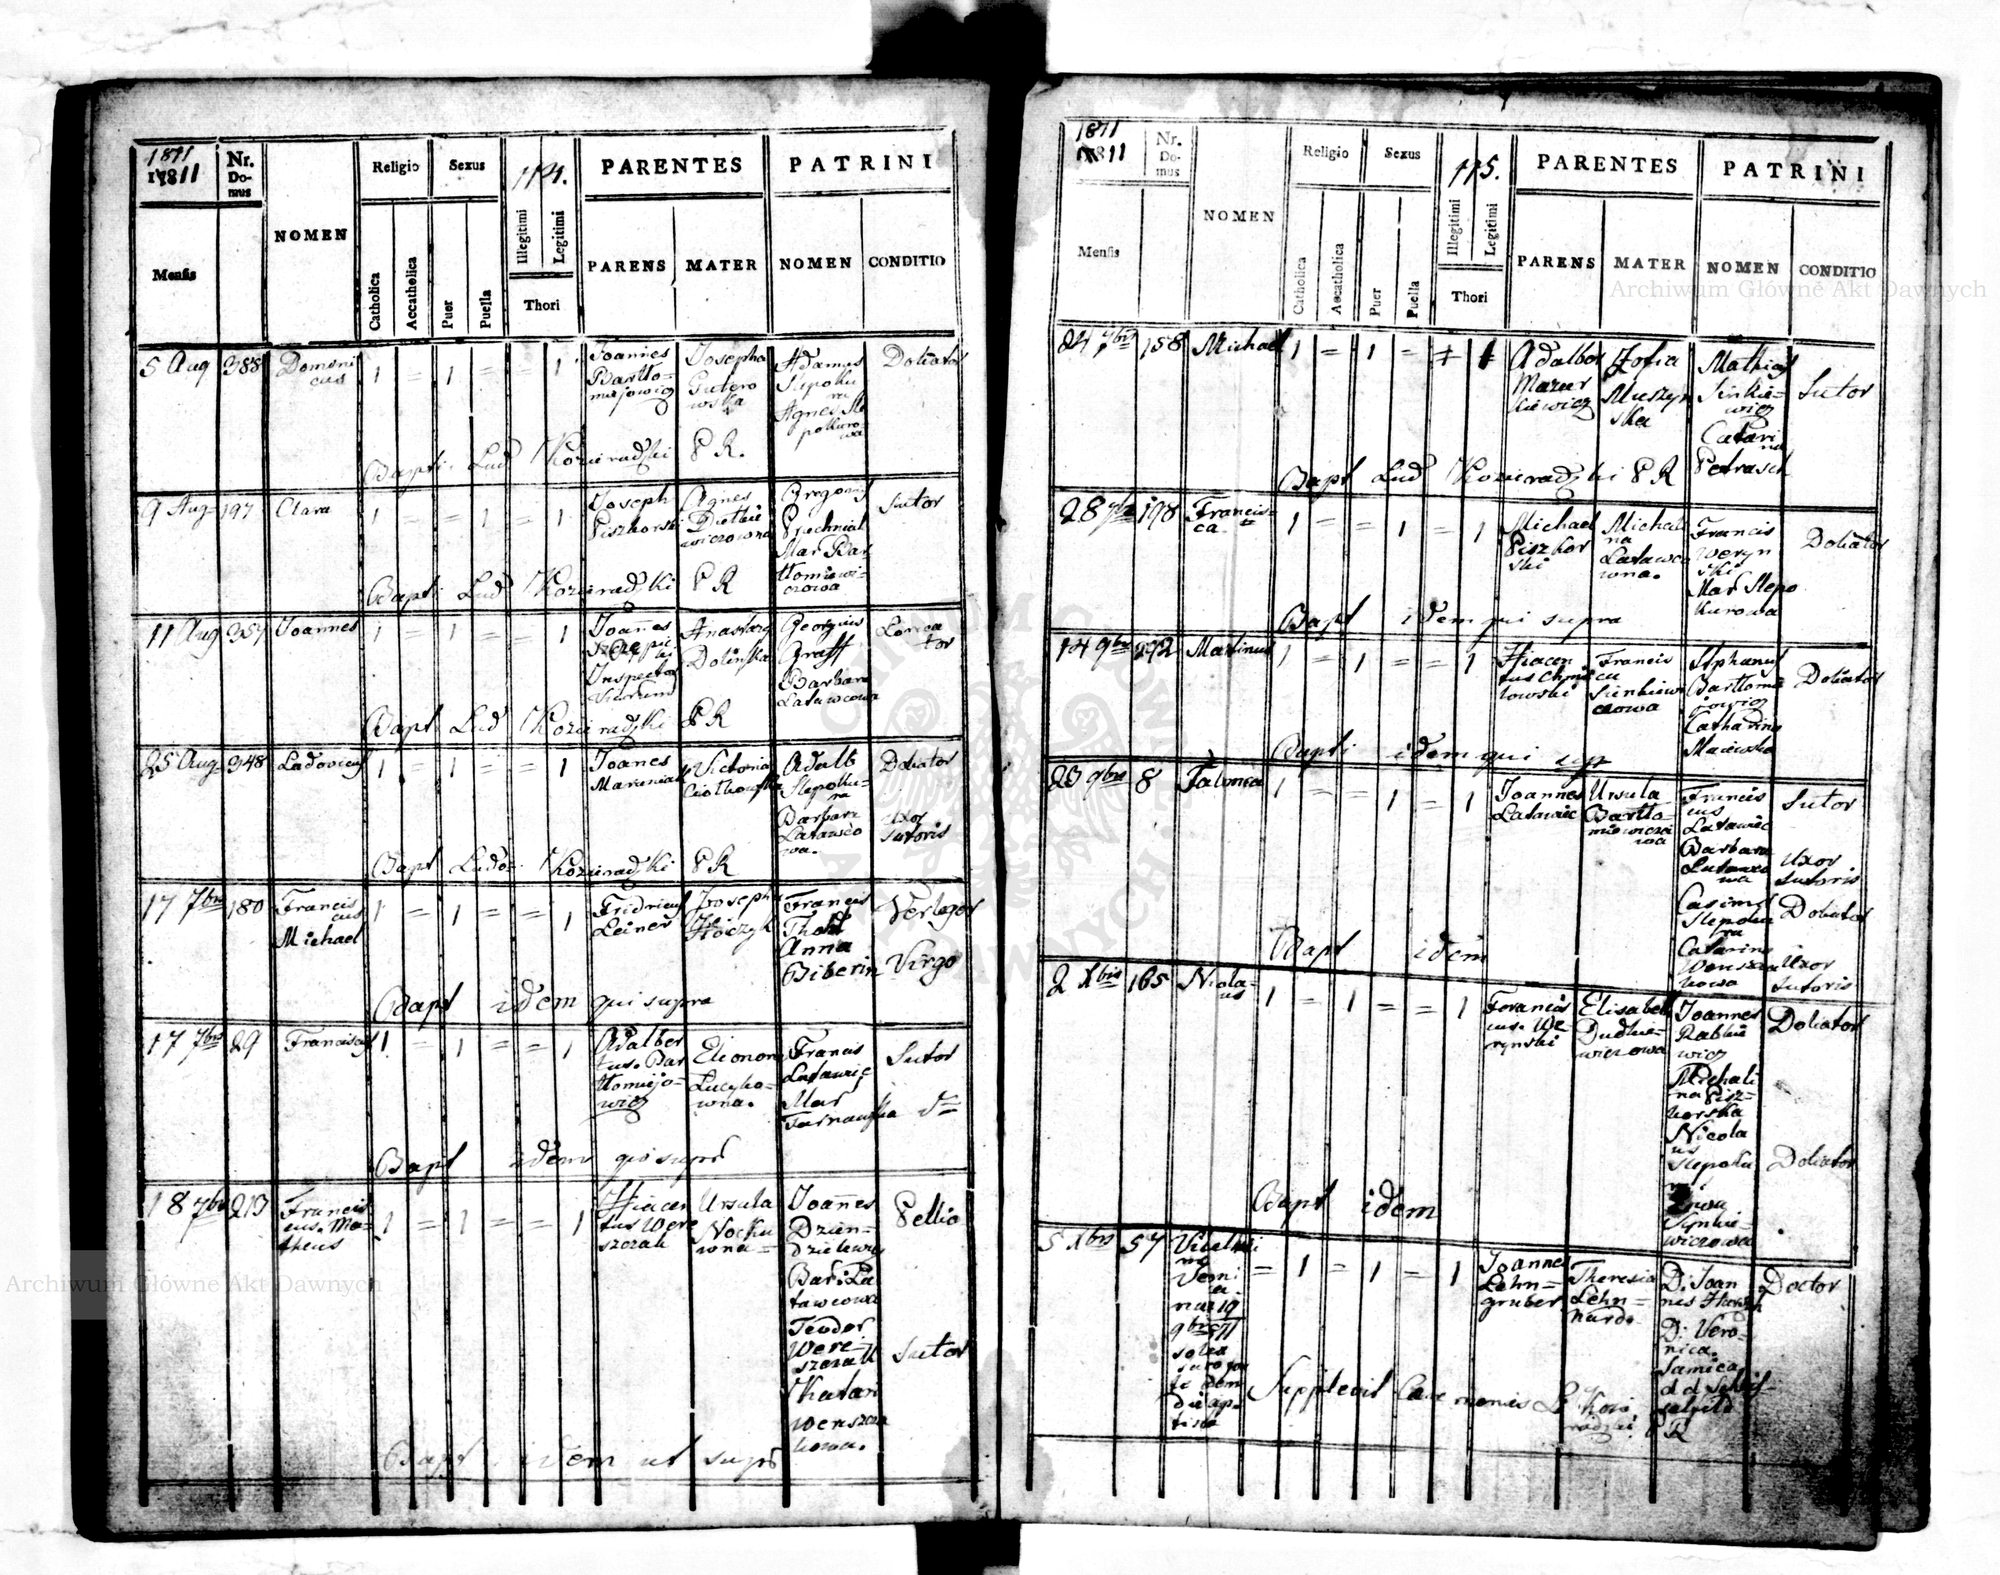 1811
1811
Nr. Do-mus
NOMEN
Religio
Sexus
114.
PARENTES
PATRINI
Mensis
Catholica
Accatholica
Puer
Puella
Illegitimi
Legitimi
Thori
PARENS
MATER
NOMEN
CONDITIO
5 Aug
388
Domini
cus
1 = 1 = = 1
Joannes
Bartło-
miejowicz
Josepha
Gutero
wska
Adamus
Slepoku
ra
Agnes Sle
pokuro-
wa
Doliator
Bapti. Lud Kozieradzki P R.
9 Aug
197
Clara
1 = = 1 = 1
Joseph
Piszkorski
Agnes
Dietkie
wiczowna
Gregorius
Spechnial
Mar Bar
tłomiewi-
czowa
Sutor
Bapti Lud Kozieradzki P R
11 Aug
357
Joannes
1 = 1 = = 1
Joannes
Inspector
Viarum
Anastazya
Dolinska
Georgius
Graff
Barbara
Latawcowa
Lorica
tor
Bapt Lud Kozieradzki P R
25 Aug
348
Ludovicus
1 = 1 = = 1
Joanes
Marieniak
Victoria
Ciołkowska
Adalb
Slepoku-
ra
Barbara
Latawco
wa.
Doliator
Uxor
Sutoris
Bapt Ludo: Kozieradzki P R
17 7bris
180
Francis
cus
Michael
1 = 1 = = 1
Fridricus
Leiner
Joseph
Francis
Anna
Biberin
Verleger
Virgo
Bapt idem qui supra
17 7bris
29
Franciscus
1 = 1 = = 1
Adalber
tus. Bar
tłomiejo-
wicz
Eleonora
Lucyko-
wna.
Francis
Latawiec
Mar
Tarnawska
Sutor
dto
Bapt idem qui supra
18 7bris
213
Francis
cus. Ma-
theus
1 = 1 = = 1
Hiacen
tus Were
szczak
Ursula
Nocku
wna
Joannes
Dzien-
Bar: La
tawcowa
Teodor
Were
szczak
Katari
Wenszcza
kowa.
Pellio
Sutor
Bapt idem ut supra
1811
1811
Nr. Do-mus
NOMEN
Religio
Sexus
115.
PARENTES
PATRINI
Mensis
Catholica
Accatholica
Puer
Puella
Illegitimi
Legitimi
Thori
PARENS
MATER
NOMEN
CONDITIO
24 7bris
158
Michael
1 = 1 =
Adalber
Mazur
kiewicz
Zofia
Muszyn
ska
Mathias
Sinkie-
wicz
Catari
na
Petrasch
Sutor
Bapt Lud Kozieradzki P R
28 7bris
198
Francis-
ca.
1 = = 1 = 1
Michael
Piszkor
ski
Michali
na
Latawco
wna.
Francis
Weryn
ski
Mar Slepo
kurowa
Doliator
Bapt idem qui supra
14 9bris
292
Martinus
1 = 1 = = 1
Hiacen
tus Chmie
lowski
Francis
ca
Sienkiewi
czowa
Stphanus
Bartłomi
jowicz
Catharina
Maiewska
Doliator
Bapti idem qui sup
23 9bris
8
1 = = 1 = 1
Joannes
Latawiec
Ursula
Bartło-
miewiczo
wa
Francis
cus
Latawiec
Barbara
Latawco
wa
Casimir
Slepoku
ra
Catarina
Wenszcza
kowa
Sutor
Uxor
Sutoris
Doliator
Uxor
Sutoris
Bapt idem
2 Xbris
165
Nicola-
us
1 = 1 = = 1
Francis
cus. We
rynski
Elisabeth
Dudkie-
wiczowa
Joannes
Rabkie
wicz
Michali
na Pisz-
korska
Nicola
us
Slepoku
ra
Synkie-
wiczowa
Doliator
Doliator
Bapt idem
5 Xbris
57
= 1 = 1 = 1
Joannes
Lehn-
gruber
Theresia
Lehn-
hardo
D. Joan
nes
D: Vero-
nica.
Doctor
Supplevit Caeremonias L Kozi
radzki P R
Archiwum Główne Akt Dawnych
Archiwum Główne Akt Dawnych